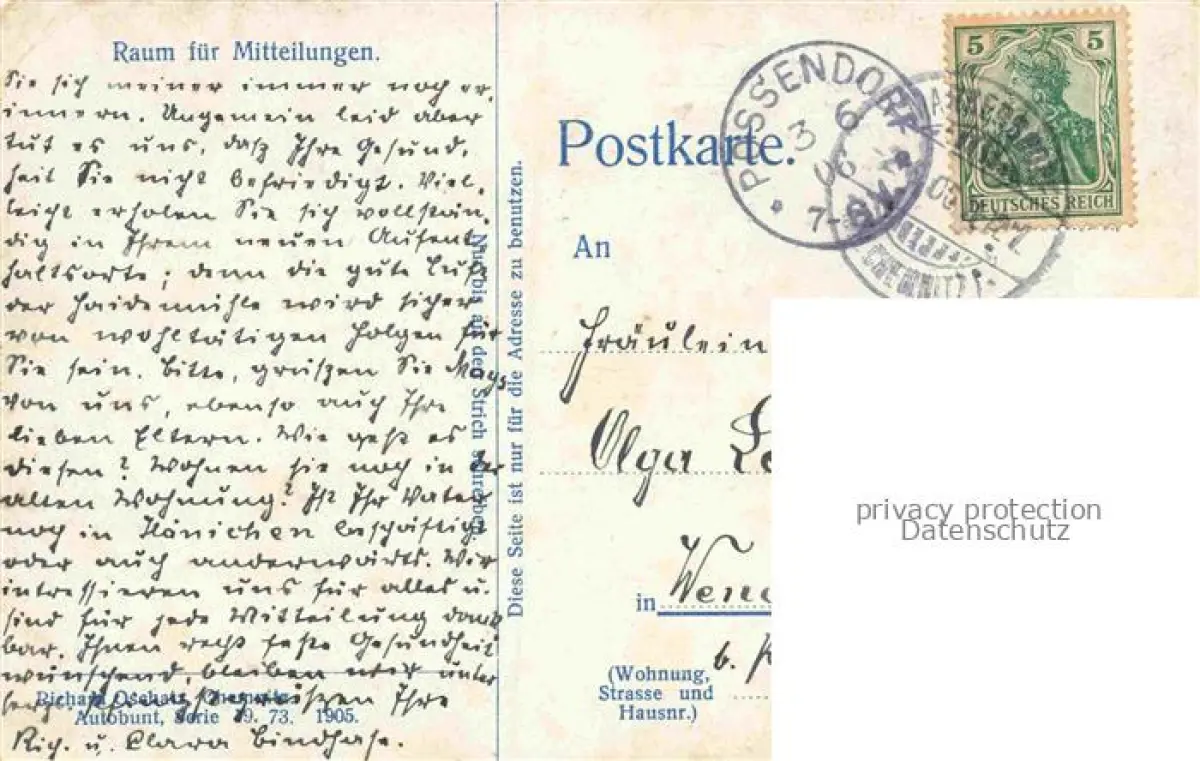 Raum für Mitteilungen.
Sie sich meiner immer noch er-
innern. Ungemein leid aber
tut es uns, daß Ihre Gesund-
heit Sie nicht befriedigt. Viel-
leicht erholen Sie sich vollstän-
dig in Ihrem neuen Aufent-
haltsorte; denn die gute Luft
der Haidemühle wird sicher
von wohltätigen Folgen für
Sie sein. Bitte, grüßen Sie
von uns, ebenso auch Ihre
lieben Eltern. Wie geht es
diesen? Wohnen sie noch in der
alten Wohnung? Ist Ihr Vater
noch in Hänichen beschäftigt
oder auch anderwärts. Wir
interessieren uns für alles u.
sind für jede Mitteilung dank-
bar. Ihnen recht feste Gesundheit
wünschend, bleiben wir unter
grüßen Ihre
Rich. u. Clara Bindhase.
Richard Oschatz, Chemnitz
Autobunt, Serie 19. 73. 1905.
Nur bis an den Strich schreiben.
Diese Seite ist nur für die Adresse zu benutzen.
Postkarte.
POSSENDORF
3 6
06
7-8N.
CHEMNITZ
5 5
DEUTSCHES REICH
An
Fräulein
Olga
in
b.
(Wohnung,
Strasse und
Hausnr.)
privacy protection
Datenschutz